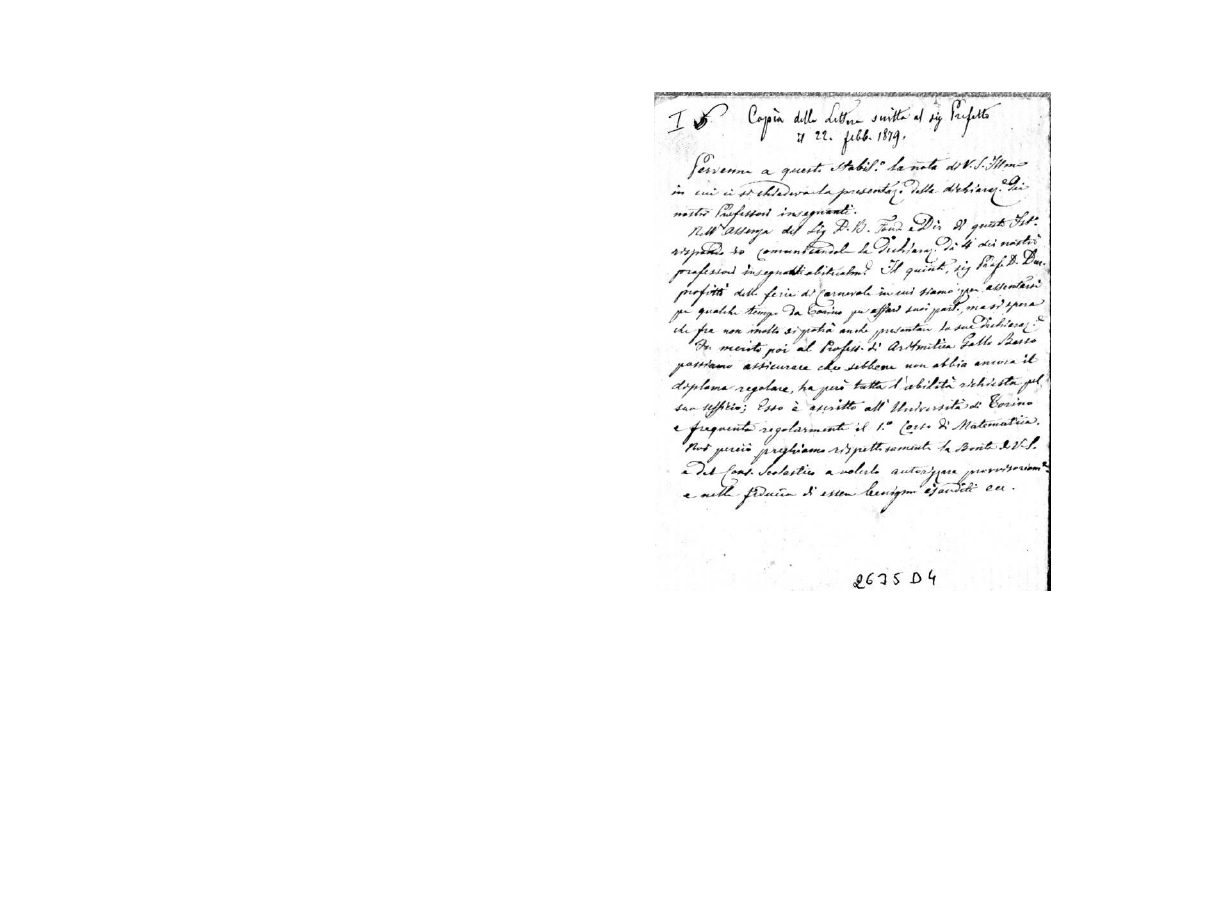 I 5
Copia della Lettera scritta al sig Prefetto
il 22. febb. 1879.
Pervenne a questo Stabil.° la nota di V. S. Illma
in cui ci si chiedeva la presentaz.e delle dichiaraz.i dei
nostri Professori insegnanti.
Nell'assenza del Sig D. B. e Dir di questo Ist.°
rispondo io comunicando le dichiaraz. di 4 dei nostri
professori insegnanti abitualm. Il quinto, sig Prof. D. Dur.
profittò delle ferie di Carnevale in cui siamo per assentarsi
per qualche tempo da Torino per affari suoi part., ma si spera
che fra non molto si potrà anche presentare la sua dichiaraz.e
In merito poi al Profess. di Aritmetica Gallo Basso
possiamo assicurare che sebbene non abbia ancora il
diploma regolare, ha però tutta l'abilità richiesta pel
suo ufficio; Esso è ascritto all'Università di Torino
e frequenta regolarmente il 1.° Corso di Matematica.
Noi perciò preghiamo rispettosamente la Bontà di V. S.
e del Cons. Scolastico a volerlo autorizzare provvisoriam.e
e nella fiducia di essere benignm esauditi ecc.
2675 D4